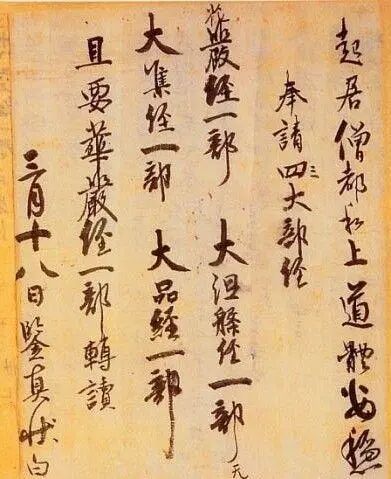 起居僧都和上道體安穩
奉請四三大部經
花嚴經一部 大涅槃經一部
大集經一部 大品經一部
且要華嚴經一部轉讀
三月十八日鑒真狀白